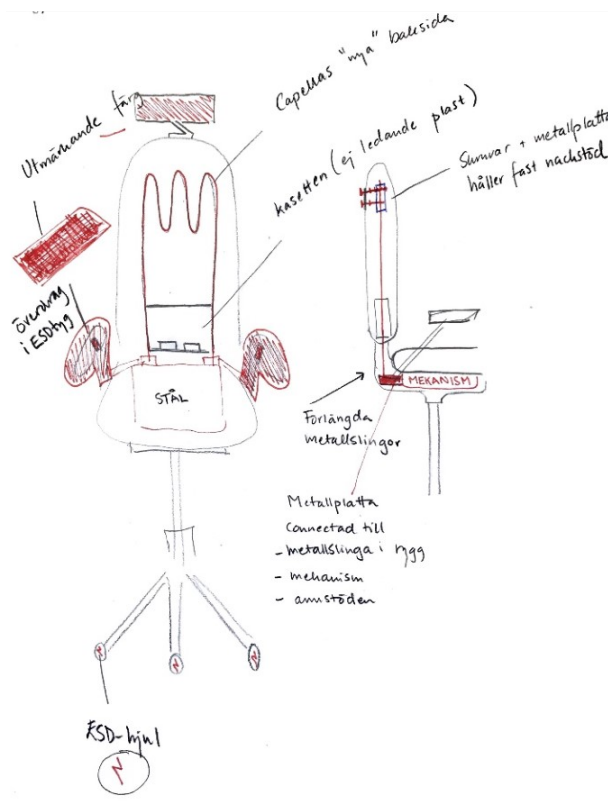 Utmärkande färg
Capellas "nya" baksida
kasetten (ej ledande plast)
Skruvar + metallplatta
håller fast nackstöd
överdrag
i ESDtyg
STÅL
MEKANISM
Förlängda
metallslingor
Metallplatta
connectad till
- metallslinga i rygg
- mekanism
- armstöden
ESD-hjul